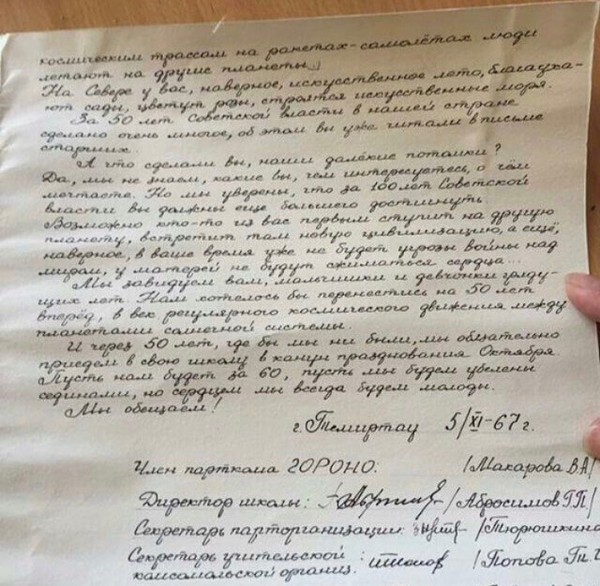 космическим трассам на ракетах-самолётах люди
летают на другие планеты.
На Севере у вас, наверное, искусственное лето, благауха-
ют сады, цветут розы, строятся искусственные моря.
За 50 лет Советской власти в нашей стране
сделано очень многое, об этом вы уже читали в письме
старших.
А что сделали вы, наши далёкие потомки?
Да, мы не знаем, какие вы, чем интересуетесь, о чём
мечтаете. Но мы уверены, что за 100 лет Советской
власти вы должны еще большего достигнуть.
Возможно кто-то из вас первым ступит на другую
планету, встретит там новую цивилизацию, а ещё,
наверное, в ваше время уже не будет угрозы войны над
миром, у матерей не будут сжиматься сердца...
Мы завидуем вам, мальчишки и девчонки гряду-
щих лет. Нам хотелось бы перенестись на 50 лет
вперёд, в век регулярного космического движения между
планетами солнечной системы.
И через 50 лет, где бы мы ни были, мы обязательно
приедем в свою школу в канун празднования Октября.
Пусть нам будет за 60, пусть мы будем убелены
сединами, но сердцем мы всегда будем молоды.
Мы обещаем!
г. Темиртау 5/XI-67 г.
Член парткома ГОРОНО: /Макарова В.А/
Директор школы: /Абросимов Г.П/
Секретарь парторганизации: /Тюрюшкина
Секретарь учительской /Попова Г.п.
комсомольской организ: